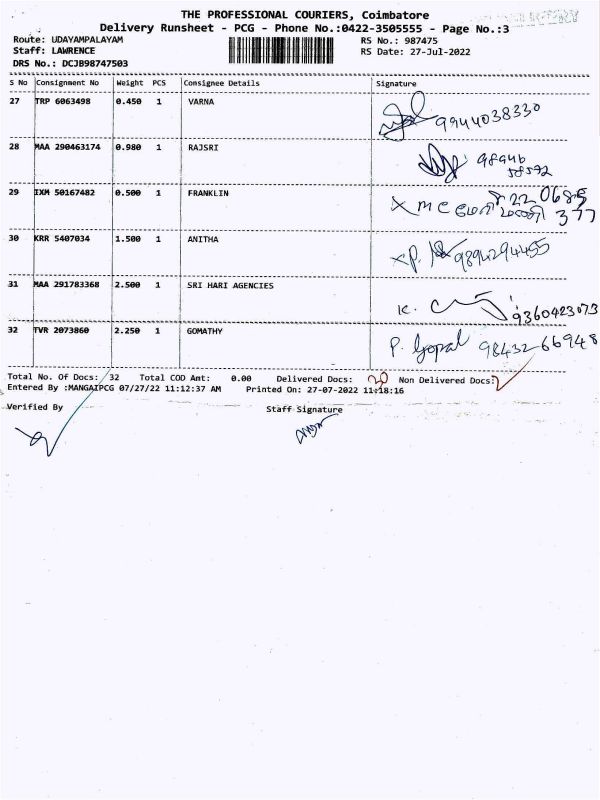 THE PROFESSIONAL COURIERS, Coimbatore
Delivery Runsheet - PCG - Phone No.:0422-3505555 - Page No.:3
Route: UDAYAMPALAYAM
RS No.: 987475
Staff: LAWRENCE
RS Date: 27-Jul-2022
DRS No.: DCJB98747503
S No Consignment No Weight PCS Consignee Details Signature
27 TRP 6063498 0.450 1 VARNA 9944038330
28 MAA 290463174 0.980 1 RAJSRI 98946
58592
29 IXM 50167482 0.500 1 FRANKLIN
377
30 KRR 5407034 1.500 1 ANITHA 9894294455
31 MAA 291783368 2.500 1 SRI HARI AGENCIES K. 9360423073
32 TVR 2073860 2.250 1 GOMATHY P. Gopal 98432-66948
Total No. Of Docs: 32 Total COD Amt: 0.00 Delivered Docs: 30 Non Delivered Docs: 2
Entered By :MANGAIPCG 07/27/22 11:12:37 AM Printed On: 27-07-2022 11:18:16
Verified By Staff Signature